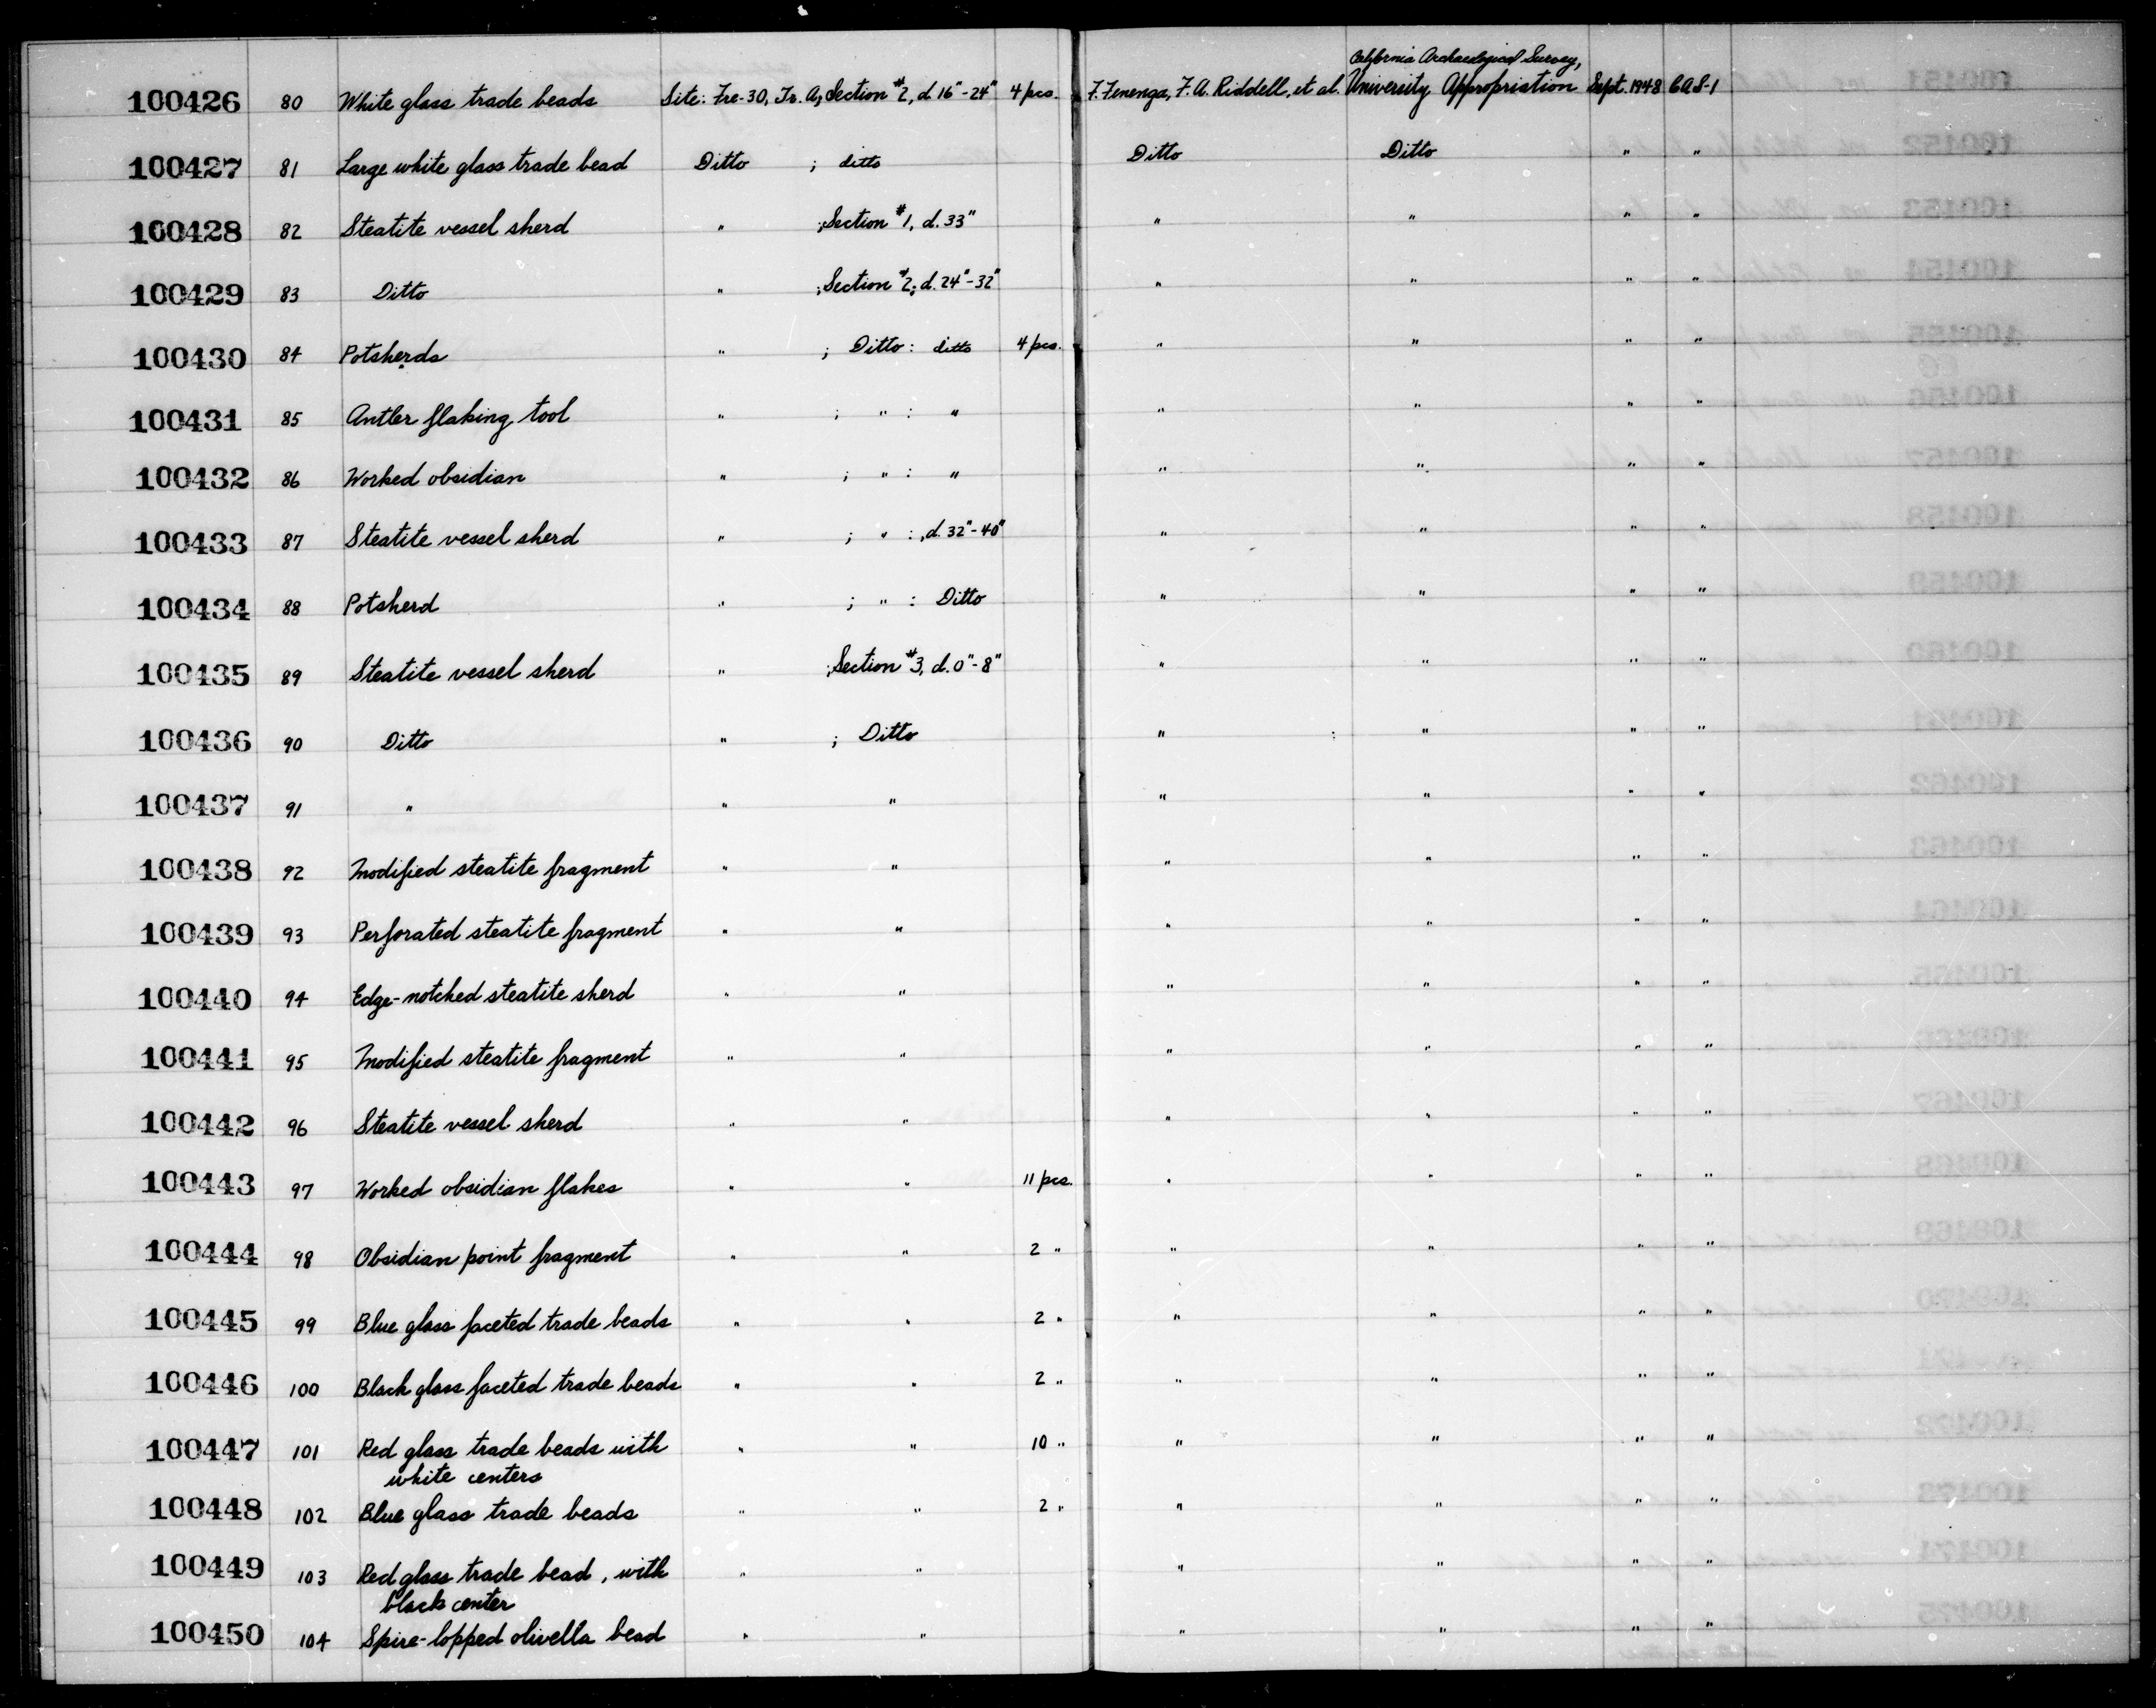 California Archaeological Survey,
100426 80 White glass trade beads Site: Fre-30, Tr. A, Section #2, d. 16"-24" 4 pcs. F. Fenenga, F. A. Riddell, et al. University Appropriation Sept. 1948 CAS-1
100427 81 Large white glass trade bead Ditto ; ditto Ditto Ditto " "
100428 82 Steatite vessel sherd " ; Section #1, d. 33" " " " "
100429 83 Ditto " ; Section #2; d. 24"-32" " " " "
100430 84 Potsherds " ; Ditto : ditto 4 pcs. " " " "
100431 85 Antler flaking tool " ; " : " " " " "
100432 86 Worked obsidian " ; " : " " " " "
100433 87 Steatite vessel sherd " ; " : , d. 32"-40" " " " "
100434 88 Potsherd " ; " : Ditto " " " "
100435 89 Steatite vessel sherd " ; Section #3, d. 0"-8" " " " "
100436 90 Ditto " ; Ditto " " " "
100437 91 " " " " " " "
100438 92 Modified steatite fragment " " " " " "
100439 93 Perforated steatite fragment " " " " " "
100440 94 Edge-notched steatite sherd " " " " " "
100441 95 Modified steatite fragment " " " " " "
100442 96 Steatite vessel sherd " " " " " "
100443 97 Worked obsidian flakes " " 11 pcs. " " " "
100444 98 Obsidian point fragment " " 2 " " " " "
100445 99 Blue glass faceted trade beads " " 2 " " " " "
100446 100 Black glass faceted trade beads " " 2 " " " " "
100447 101 Red glass trade beads with " " 10 " " " " "
white centers
100448 102 Blue glass trade beads " " 2 " " " " "
100449 103 Red glass trade bead, with " " " " " "
black center
100450 104 Spire-lopped olivella bead " " " " " "